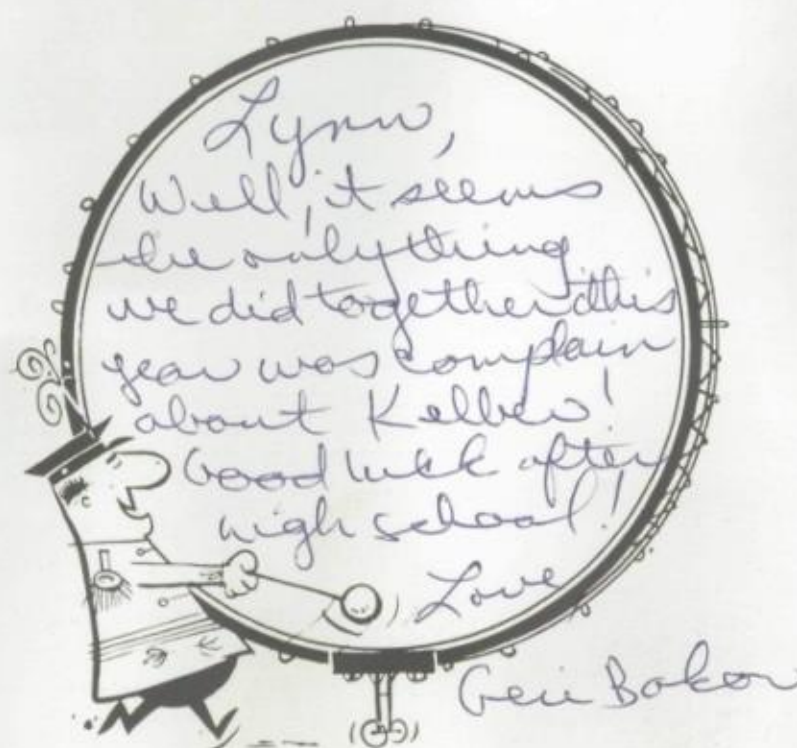 Lynn,
Well, it seems
the only thing
we did together this
year was complain
about
Good luck after
high school!
Love
Geri